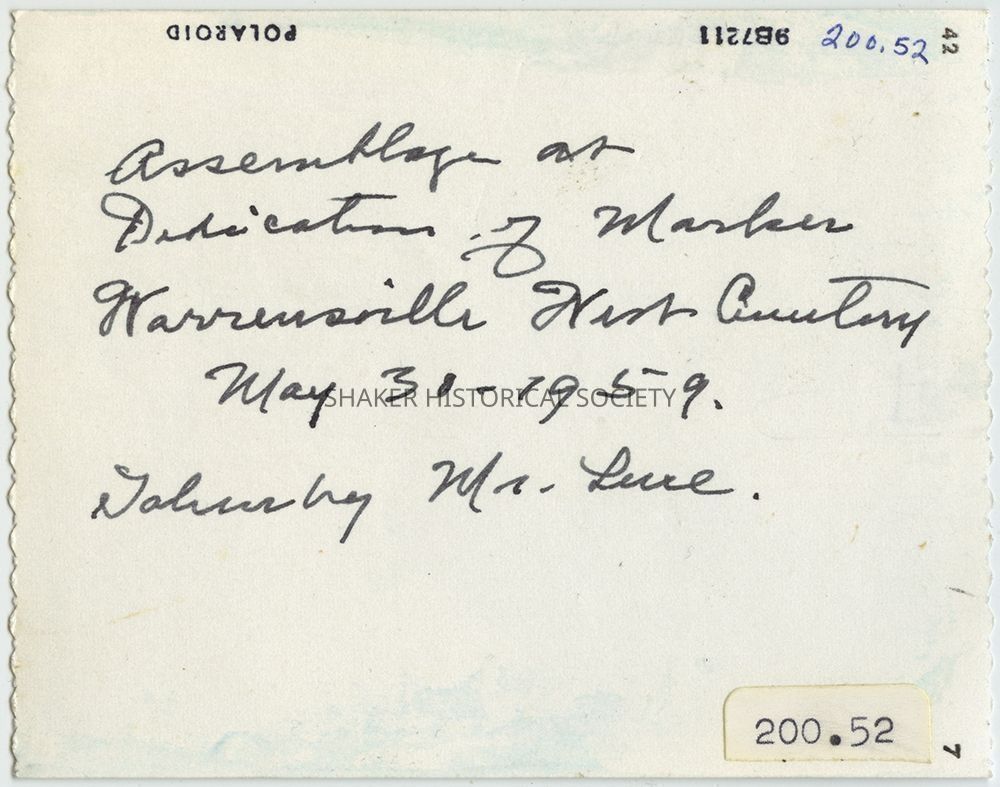 POLAROID 9B7211 200.52 42
Assemblage at
Dedication of Marker
Warrensville West Cemetery
May 30-1959.
SHAKER HISTORICAL SOCIETY
Taken by Mr.
200.52
7